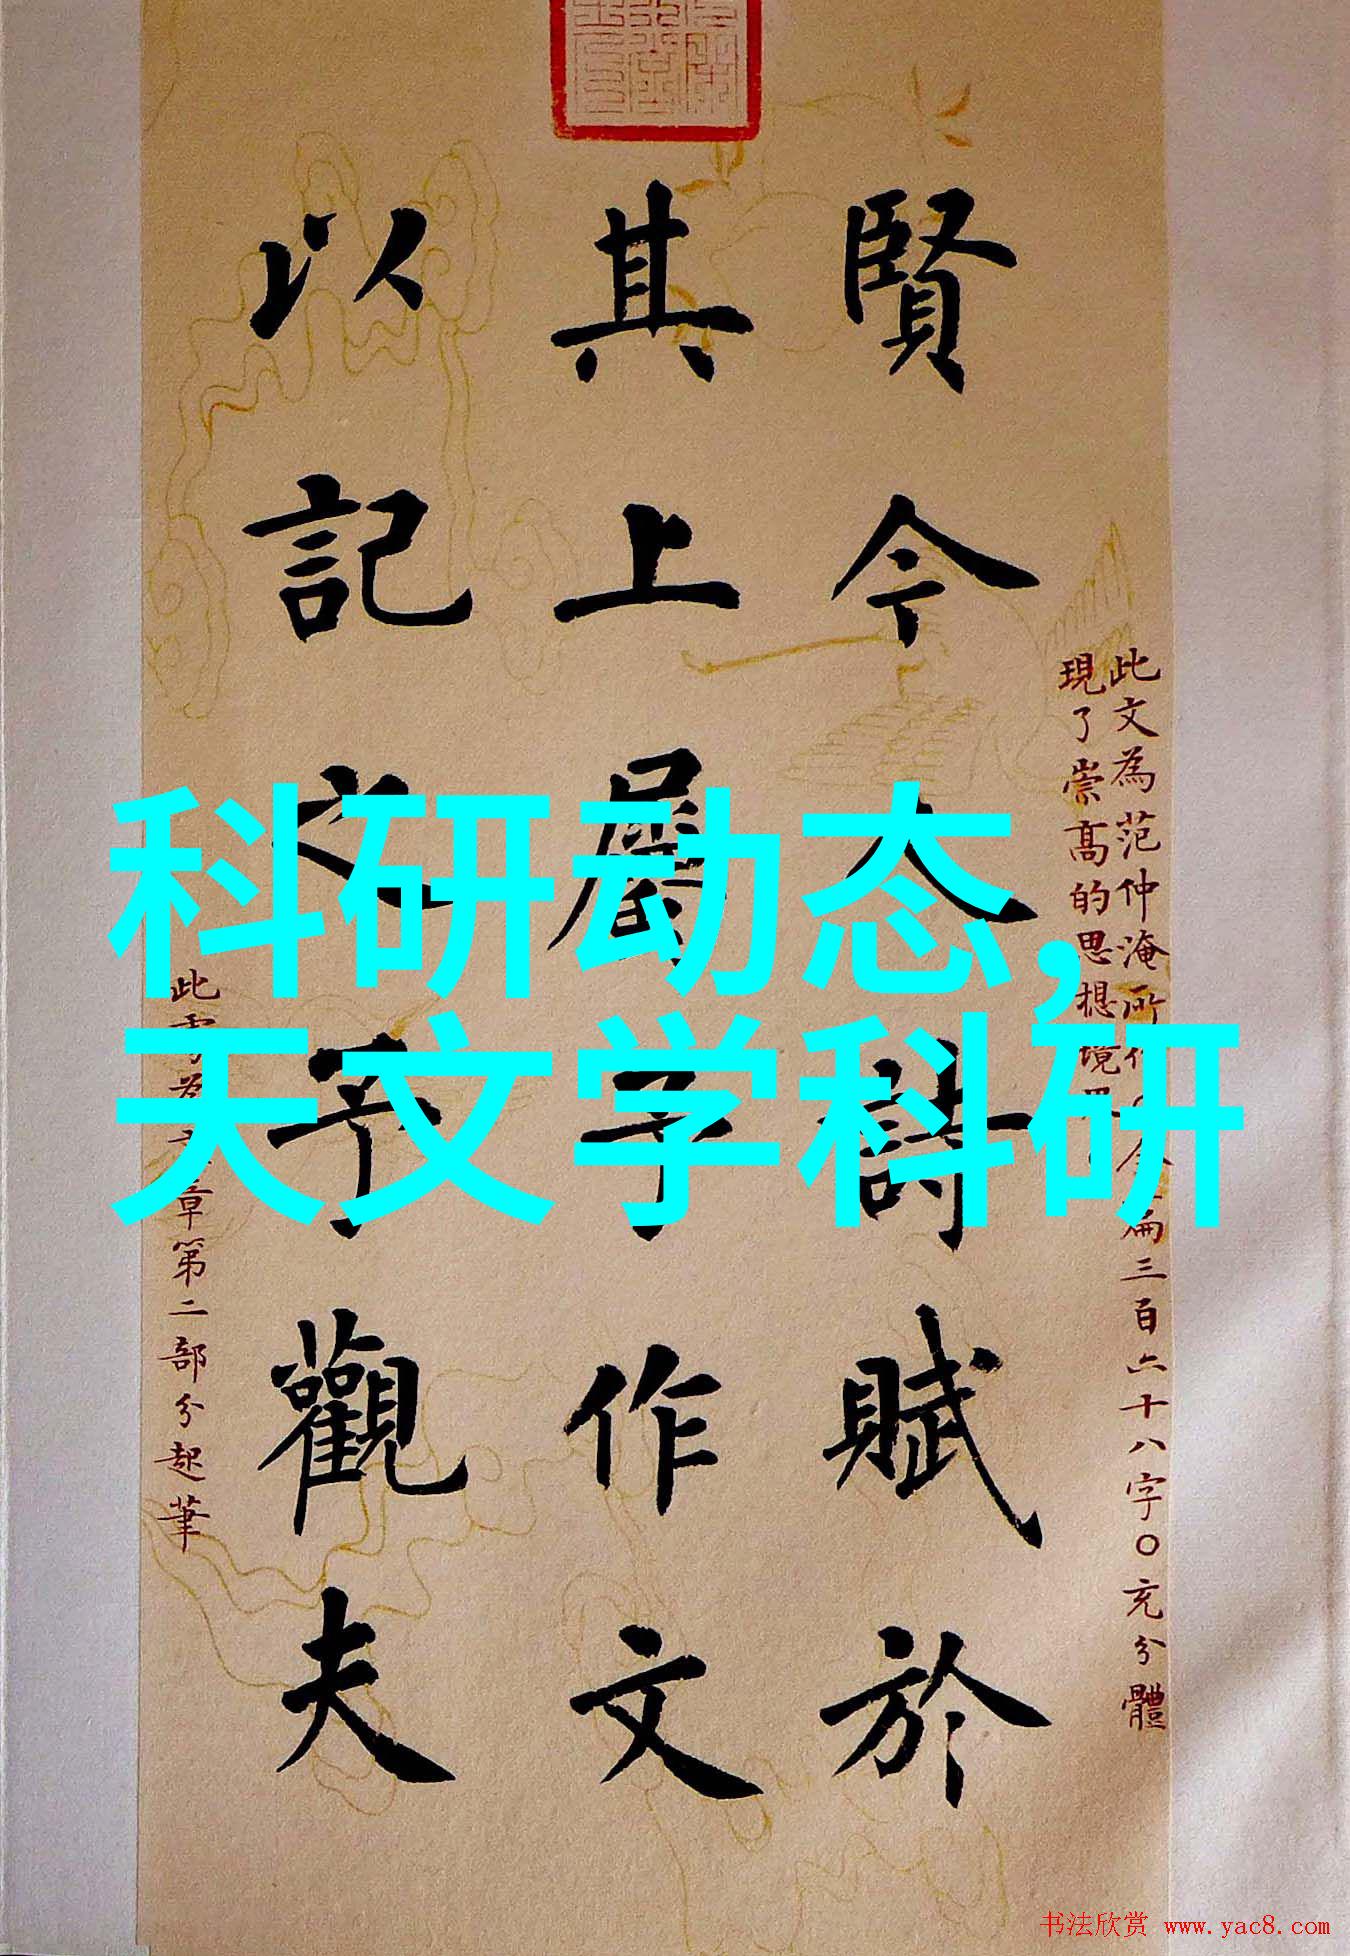 賢今人詩賦於
其上屬予作文
以記之予觀夫
此文為范仲淹所作
全篇三百六十八字〇充分體
現了崇高的思想境界
章第二部分起筆
科研动态,
天文学科研
书法欣赏 www.yac8.com